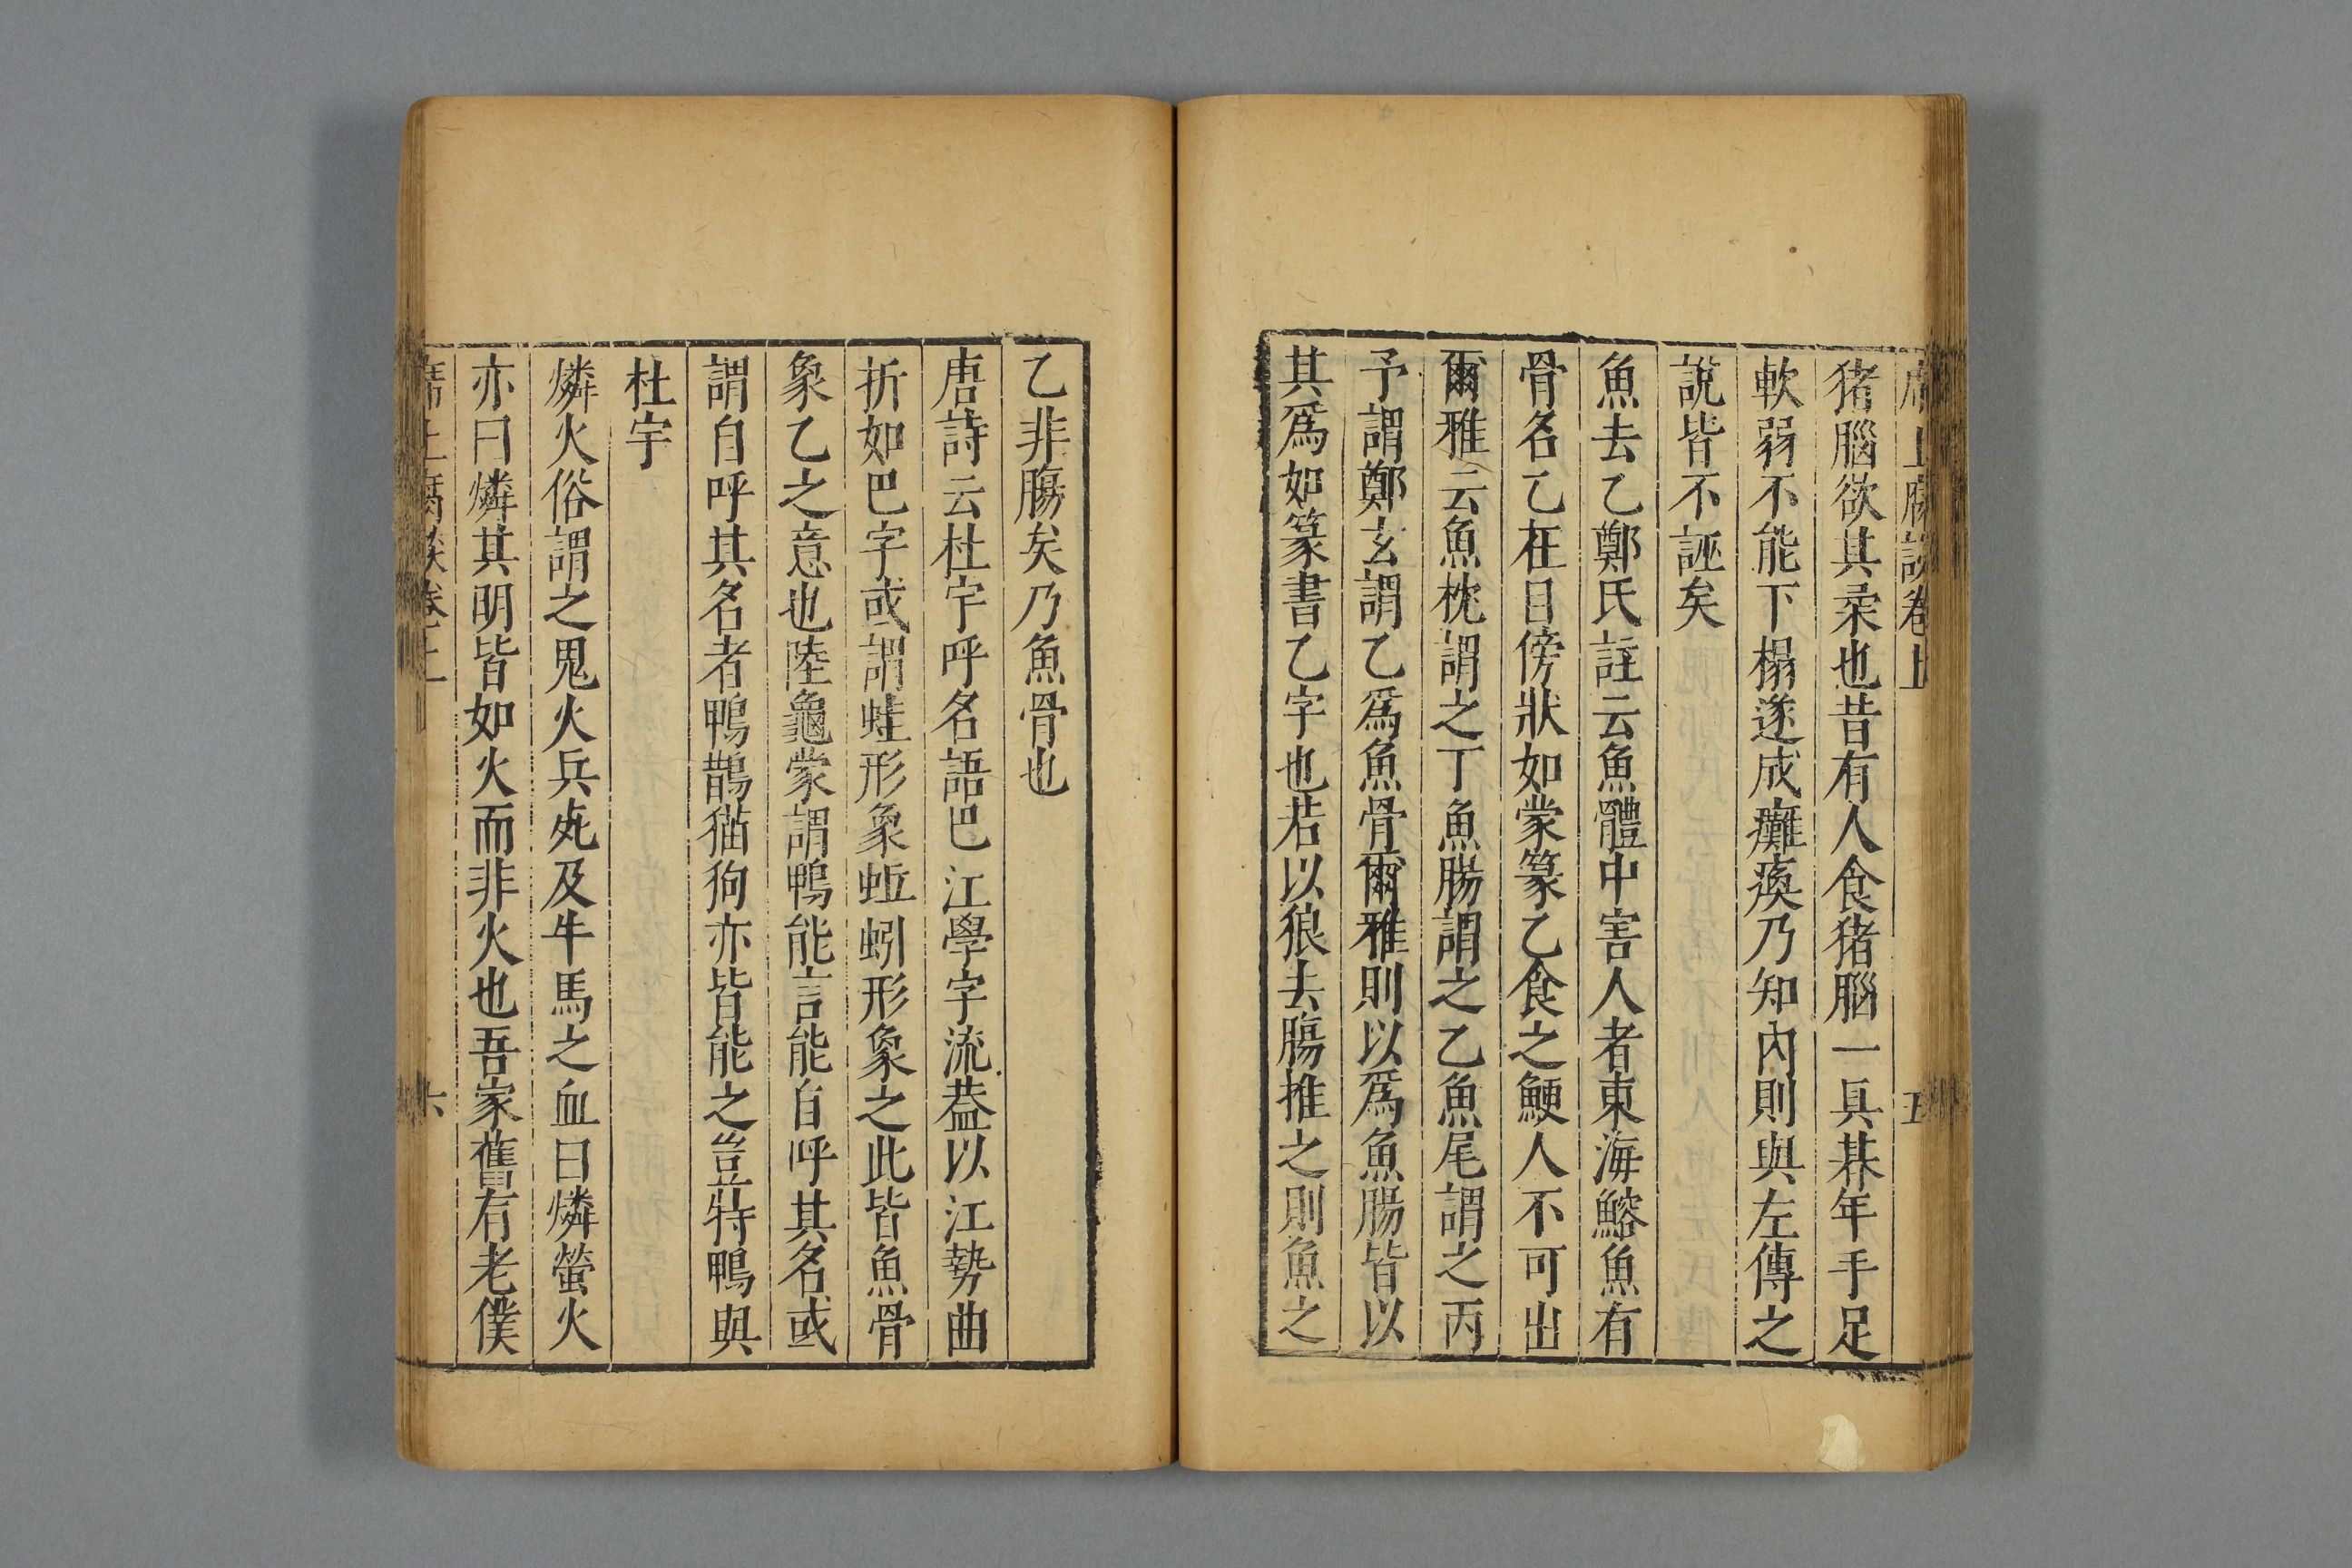 席上腐談卷上 五
猪腦欲其柔也昔有人食猪腦一具朞年手足
軟弱不能下榻遂成癱瘓乃知內則與左傳之
說皆不誣矣
魚去乙鄭氏註云魚體中害人者東海鰫魚有
骨名乙在目傍狀如蒙篆乙食之鯁人不可出
爾雅云魚枕謂之丁魚腸謂之乙魚尾謂之丙
予謂鄭玄謂乙爲魚骨爾雅則以爲魚腸皆以
其爲如篆書乙字也若以狼去腸推之則魚之
乙非腸矣乃魚骨也
唐詩云杜宇呼名語巴江學字流葢以江勢曲
折如巴字或謂蛙形象蚯蚓形象之此皆魚骨
象乙之意也陸龜蒙謂鴨能言能自呼其名或
謂自呼其名者鴨鵲猫狗亦皆能之豈特鴨與
杜宇
燐火俗謂之鬼火兵死及牛馬之血曰燐螢火
亦曰燐其明皆如火而非火也吾家舊有老僕
席上腐談卷上 六